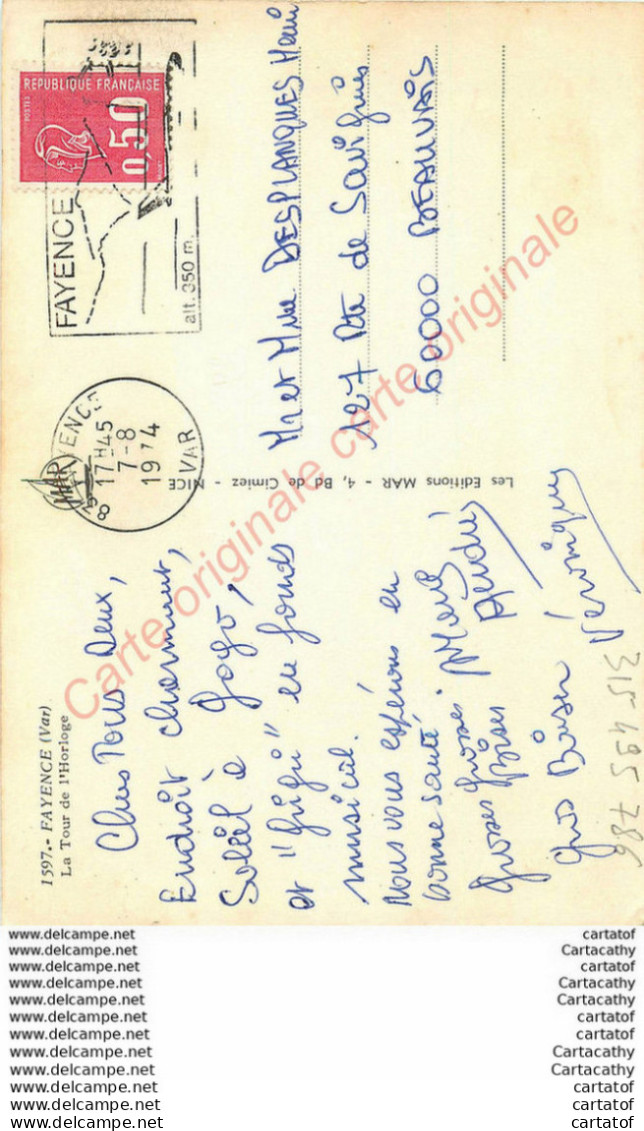 1597.- FAYENCE (Var)
La Tour de l'Horloge
Chers Tous Deux,
Endroit charmant,
Soleil à Gogo,
et "frifri" en fonds
musical.
Nous vous espérons en
bonne santé
Grosses grosses
Bises
André
Gros Baiser Véronique
315-495 786
Les Editions MAR - 4, Bd de Cimiez - NICE
MAR
REPUBLIQUE FRANÇAISE
POSTES
0,50
FAYENCE
alt. 350 m.
83 FAYENCE
17H45
7-8
1974
VAR
Mr et Mme DESPLANQUES Henri
127 Rte de
60000 BEAUVAIS
Carte originale carte originale
www.delcampe.net cartatof
www.delcampe.net Cartacathy
www.delcampe.net cartatof
www.delcampe.net Cartacathy
www.delcampe.net Cartacathy
www.delcampe.net cartatof
www.delcampe.net cartatof
www.delcampe.net Cartacathy
www.delcampe.net Cartacathy
www.delcampe.net cartatof
www.delcampe.net cartatof
www.delcampe.net cartatof